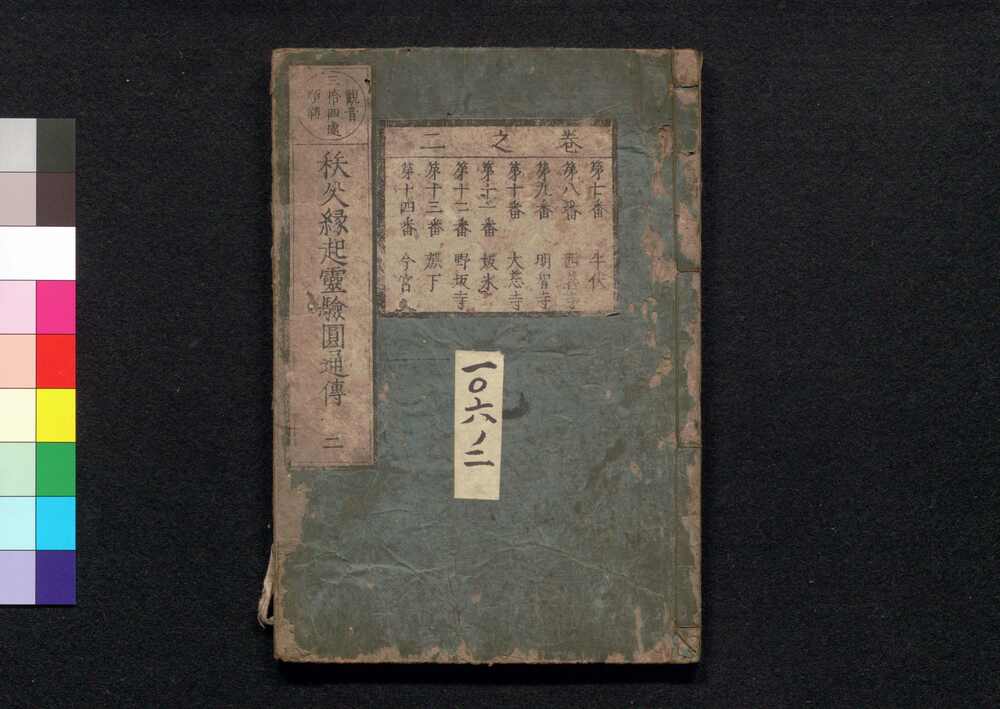 巻之二
第七番 牛伏
第八番 西善寺
第九番 明智寺
第十番 大慈寺
第十一番 坂氷
第十二番 野坂寺
第十三番 籏下
第十四番 今宮
觀音
三拾四處
順禮
秩父縁起靈驗圓通傳 二
一〇六ノ二